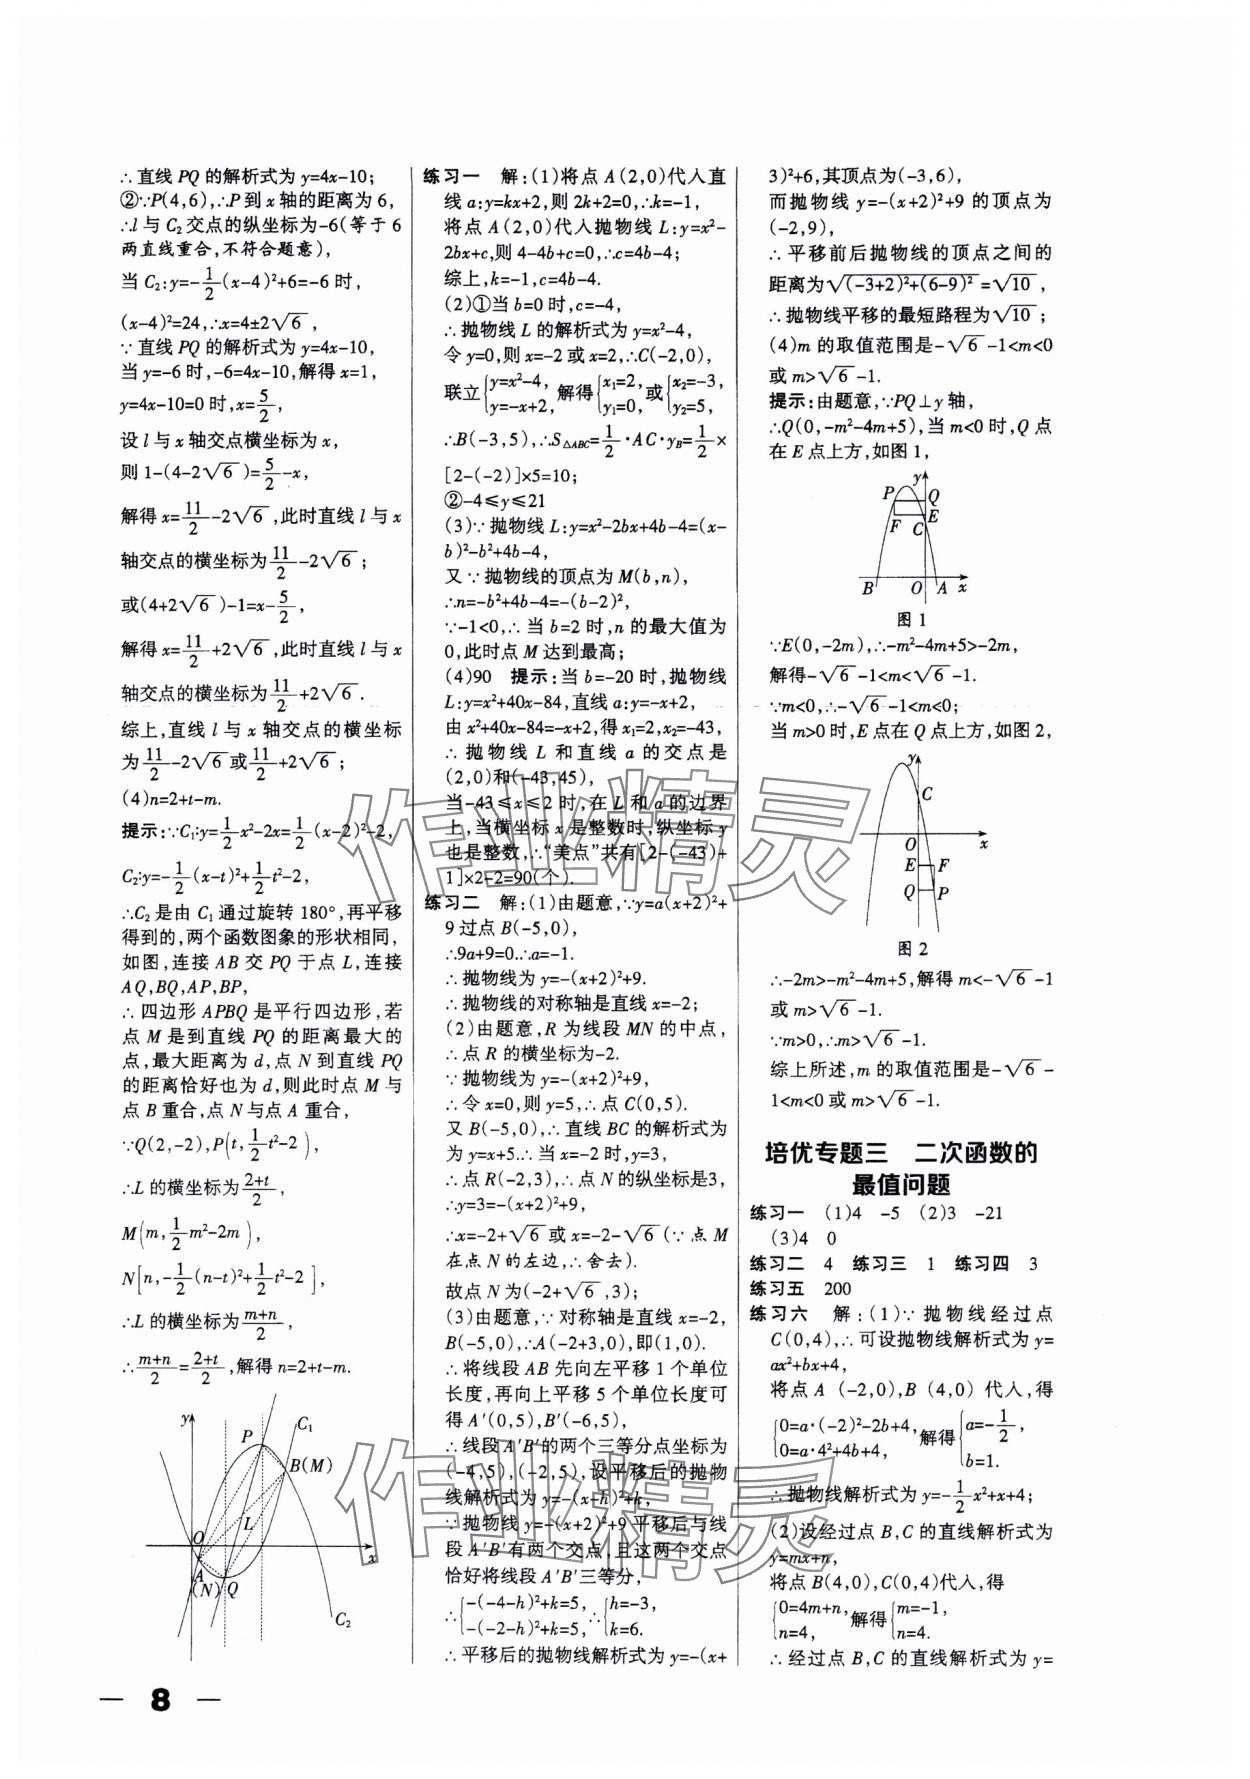 ∴直线 PQ 的解析式为 y=4x-10;
②∵P(4,6),∴P 到 x 轴的距离为 6,
∴l 与 C₂ 交点的纵坐标为-6(等于 6
两直线重合,不符合题意),
当 C₂:y=-1/2(x-4)²+6=-6 时,
(x-4)²=24,∴x=4±2√6,
∵直线 PQ 的解析式为 y=4x-10,
当 y=-6 时,-6=4x-10,解得 x=1,
y=4x-10=0 时,x=5/2,
设 l 与 x 轴交点横坐标为 x,
则 1-(4-2√6)=5/2-x,
解得 x=11/2-2√6,此时直线 l 与 x
轴交点的横坐标为11/2-2√6;
或(4+2√6)-1=x-5/2,
解得 x=11/2+2√6,此时直线 l 与 x
轴交点的横坐标为11/2+2√6.
综上,直线 l 与 x 轴交点的横坐标
为11/2-2√6或11/2+2√6;
(4)n=2+t-m.
提示:∵C₁:y=1/2x²-2x=1/2(x-2)²-2,
C₂:y=-1/2(x-t)²+1/2t²-2,
∴C₂ 是由 C₁ 通过旋转 180°,再平移
得到的,两个函数图象的形状相同,
如图,连接 AB 交 PQ 于点 L,连接
AQ,BQ,AP,BP,
∴四边形 APBQ 是平行四边形,若
点 M 是到直线 PQ 的距离最大的
点,最大距离为 d,点 N 到直线 PQ
的距离恰好也为 d,则此时点 M 与
点 B 重合,点 N 与点 A 重合,
∵Q(2,-2),P(t,1/2t²-2),
∴L 的横坐标为(2+t)/2,
M(m,1/2m²-2m),
N[n,-1/2(n-t)²+1/2t²-2],
∴L 的横坐标为(m+n)/2,
∴(m+n)/2=(2+t)/2,解得 n=2+t-m.
y
C₁
P
B(M)
L
O
x
A
(N)
Q
C₂
练习一 解:(1)将点 A(2,0)代入直
线 a:y=kx+2,则 2k+2=0,∴k=-1,
将点 A(2,0)代入抛物线 L:y=x²-
2bx+c,则 4-4b+c=0,∴c=4b-4;
综上,k=-1,c=4b-4.
(2)①当 b=0 时,c=-4,
∴抛物线 L 的解析式为 y=x²-4,
令 y=0,则 x=-2 或 x=2,∴C(-2,0),
联立{y=x²-4, y=-x+2, 解得{x₁=2, y₁=0, 或{x₂=-3, y₂=5,
∴B(-3,5),∴S△ABC=1/2·AC·y_B=1/2×
[2-(-2)]×5=10;
②-4≤y≤21
(3)∵抛物线 L:y=x²-2bx+4b-4=(x-
b)²-b²+4b-4,
又∵抛物线的顶点为 M(b,n),
∴n=-b²+4b-4=-(b-2)²,
∵-1<0,∴当 b=2 时,n 的最大值为
0,此时点 M 达到最高;
(4)90 提示:当 b=-20 时,抛物线
L:y=x²+40x-84,直线 a:y=-x+2,
由 x²+40x-84=-x+2,得 x₁=2,x₂=-43,
∴抛物线 L 和直线 a 的交点是
(2,0)和(-43,45),
当-43≤x≤2 时,在 L 和 a 的边界
上,当横坐标 x 是整数时,纵坐标 y
也是整数,∴“美点”共有[2-(-43)+
1]×2-2=90(个).
练习二 解:(1)由题意,∵y=a(x+2)²+
9 过点 B(-5,0),
∴9a+9=0.∴a=-1.
∴抛物线为 y=-(x+2)²+9.
∴抛物线的对称轴是直线 x=-2;
(2)由题意,R 为线段 MN 的中点,
∴点 R 的横坐标为-2.
∵抛物线为 y=-(x+2)²+9,
∴令 x=0,则 y=5,∴点 C(0,5).
又 B(-5,0),∴直线 BC 的解析式为
为 y=x+5.∴当 x=-2 时,y=3,
∴点 R(-2,3),∴点 N 的纵坐标是3,
∴y=3=-(x+2)²+9,
∴x=-2+√6或 x=-2-√6(∵点 M
在点 N 的左边,∴舍去).
故点 N 为(-2+√6,3);
(3)由题意,∵对称轴是直线 x=-2,
B(-5,0),∴A(-2+3,0),即(1,0).
∴将线段 AB 先向左平移 1 个单位
长度,再向上平移 5 个单位长度可
得 A′(0,5),B′(-6,5),
∴线段 A′B′的两个三等分点坐标为
(-4,5),(-2,5),设平移后的抛物
线解析式为 y=-(x+h)²+k,
∵抛物线 y=-(x+2)²+9 平移后与线
段 A′B′有两个交点,且这两个交点
恰好将线段 A′B′三等分,
∴{-(-4-h)²+k=5, -(-2-h)²+k=5, ∴{h=-3, k=6.
∴平移后的抛物线解析式为 y=-(x+
3)²+6,其顶点为(-3,6),
而抛物线 y=-(x+2)²+9 的顶点为
(-2,9),
∴平移前后抛物线的顶点之间的
距离为√((-3+2)²+(6-9)²)=√10,
∴抛物线平移的最短路程为√10;
(4)m 的取值范围是-√6-1<m<0
或 m>√6-1.
提示:由题意,∵PQ⊥y 轴,
∴Q(0,-m²-4m+5),当 m<0 时,Q 点
在 E 点上方,如图 1,
y
P
Q
E
F
C
B
O
A
x
图 1
∵E(0,-2m),∴-m²-4m+5>-2m,
解得-√6-1<m<√6-1.
∵m<0,∴-√6-1<m<0;
当 m>0 时,E 点在 Q 点上方,如图 2,
y
C
O
x
E
F
Q
P
图 2
∴-2m>-m²-4m+5,解得 m<-√6-1
或 m>√6-1.
∵m>0,∴m>√6-1.
综上所述,m 的取值范围是-√6-
1<m<0 或 m>√6-1.
培优专题三 二次函数的
最值问题
练习一 (1)4 -5 (2)3 -21
(3)4 0
练习二 4 练习三 1 练习四 3
练习五 200
练习六 解:(1)∵抛物线经过点
C(0,4),∴可设抛物线解析式为 y=
ax²+bx+4,
将点 A (-2,0),B (4,0) 代入,得
{0=a·(-2)²-2b+4, 0=a·4²+4b+4, 解得{a=-1/2, b=1.
∴抛物线解析式为 y=-1/2x²+x+4;
(2)设经过点 B,C 的直线解析式为
y=mx+n,
将点 B(4,0),C(0,4)代入,得
{0=4m+n, n=4, 解得{m=-1, n=4.
∴经过点 B,C 的直线解析式为 y=
— 8 —
作业精灵
作业精灵